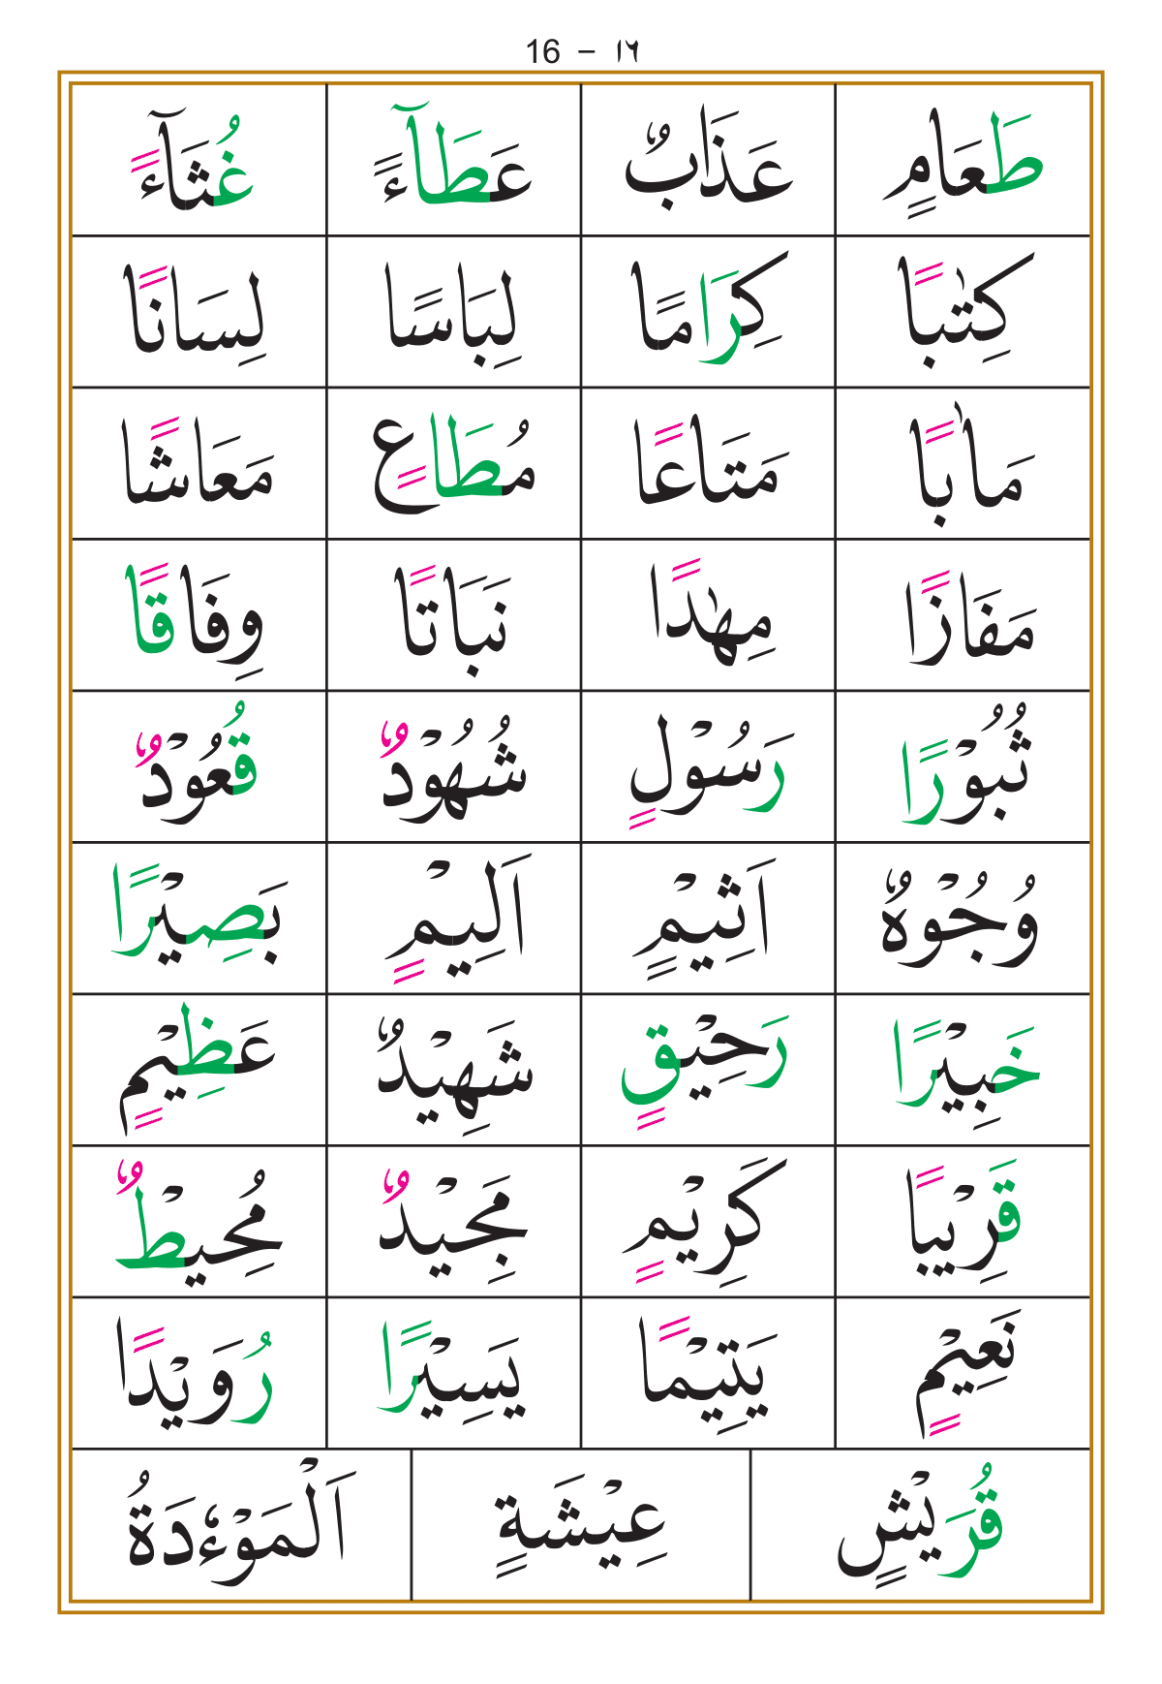 16 – ١٦
طَعَامٍ عَذَابٌ عَطَآءً غُثَآءً
كِتٰبًا كِرَامًا لِبَاسًا لِسَانًا
مَاٰبًا مَتَاعًا مُطَاعٍ مَعَاشًا
مَفَازًا مِهٰدًا نَبَاتًا وِفَاقًا
ثُبُوْرًا رَسُوْلٍ شُهُوْدٌ قُعُوْدٌ
وُجُوْهٌ اَثِيْمٍ اَلِيْمٍ بَصِيْرًا
خَبِيْرًا رَحِيْقٍ شَهِيْدٌ عَظِيْمٍ
قَرِيْبًا كَرِيْمٍ مَجِيْدٌ مُحِيْطٌ
نَعِيْمٍ يَتِيْمًا يَسِيْرًا رُوَيْدًا
قُرَيْشٍ عِيْشَةٍ اَلْمَوْءٗدَةُ